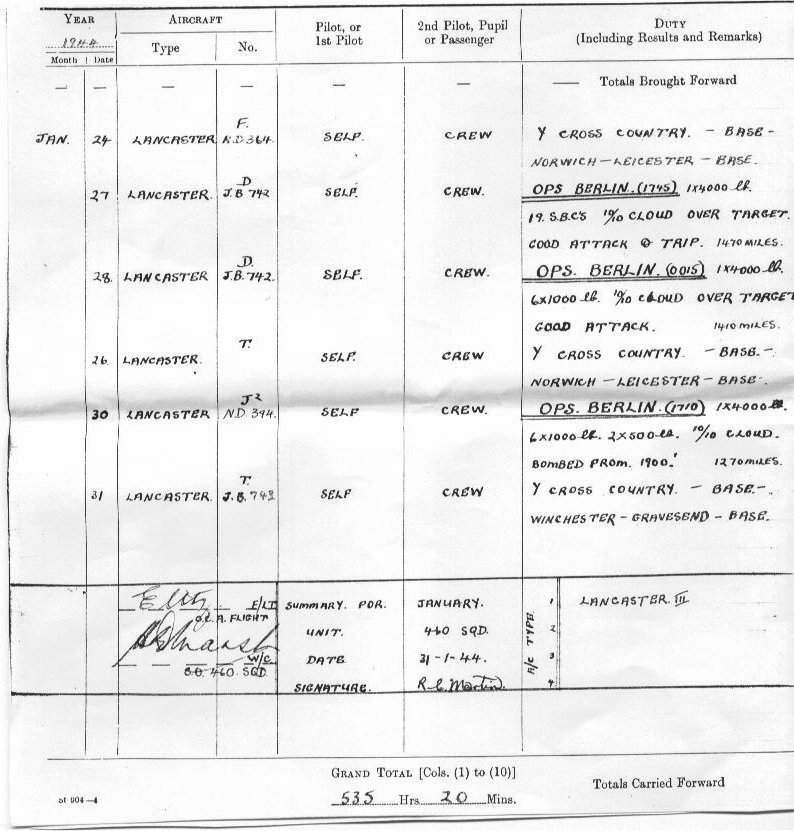 YEAR AIRCRAFT Pilot, or 1st Pilot 2nd Pilot, Pupil or Passenger DUTY (Including Results and Remarks)
1944
Month Date Type No.
— — — — — — — Totals Brought Forward
F.
JAN. 24 LANCASTER N.D.364. SELF. CREW Y CROSS COUNTRY. — BASE —
NORWICH — LEICESTER — BASE.
D
27 LANCASTER. J.B 742 SELF. CREW. OPS BERLIN. (1745) 1X4000 lb.
19. S.B.C'S 10/10 CLOUD OVER TARGET.
GOOD ATTACK & TRIP. 1470 MILES.
D.
28 LANCASTER J.B. 742. SELF. CREW. OPS. BERLIN. (0015) 1X4000 lb.
6X1000 lb. 10/10 CLOUD OVER TARGET
GOOD ATTACK. 1410 MILES.
T.
26 LANCASTER. SELF. CREW Y CROSS COUNTRY. — BASE. —
NORWICH — LEICESTER — BASE.
J2
30 LANCASTER N.D. 394. SELF CREW. OPS. BERLIN. (1710) 1X4000 lb.
6X1000 lb. 2X500 lb. 10/10 CLOUD.
BOMBED FROM. 1900.' 1270 MILES.
T.
31 LANCASTER. J.B. 743 SELF CREW Y CROSS COUNTRY. — BASE. —
WINCHESTER — GRAVESEND — BASE.
F/LT SUMMARY. FOR. JANUARY. A/C TYPE. 1 LANCASTER. III
O.C. A. FLIGHT
UNIT. 460 SQD. 2
W/C DATE 31-1-44. 3
C.O. 460 SQD
SIGNATURE. R.C. Martin. 4
GRAND TOTAL [Cols. (1) to (10)]
535 Hrs 20 Mins. Totals Carried Forward
St 904—4